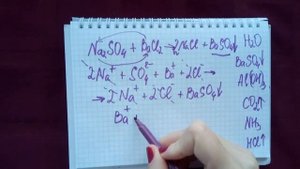 Na₂SO₄ + BaCl₂ → 2NaCl + BaSO₄↓
2Na⁺ + SO₄²⁻ + Ba⁺ + 2Cl⁻
→ 2Na⁺ + 2Cl⁻ + BaSO₄↓
Ba⁺
H₂O
BaSO₄↓
Al(OH)₃
CO₂↑
NH₃
HCl↑